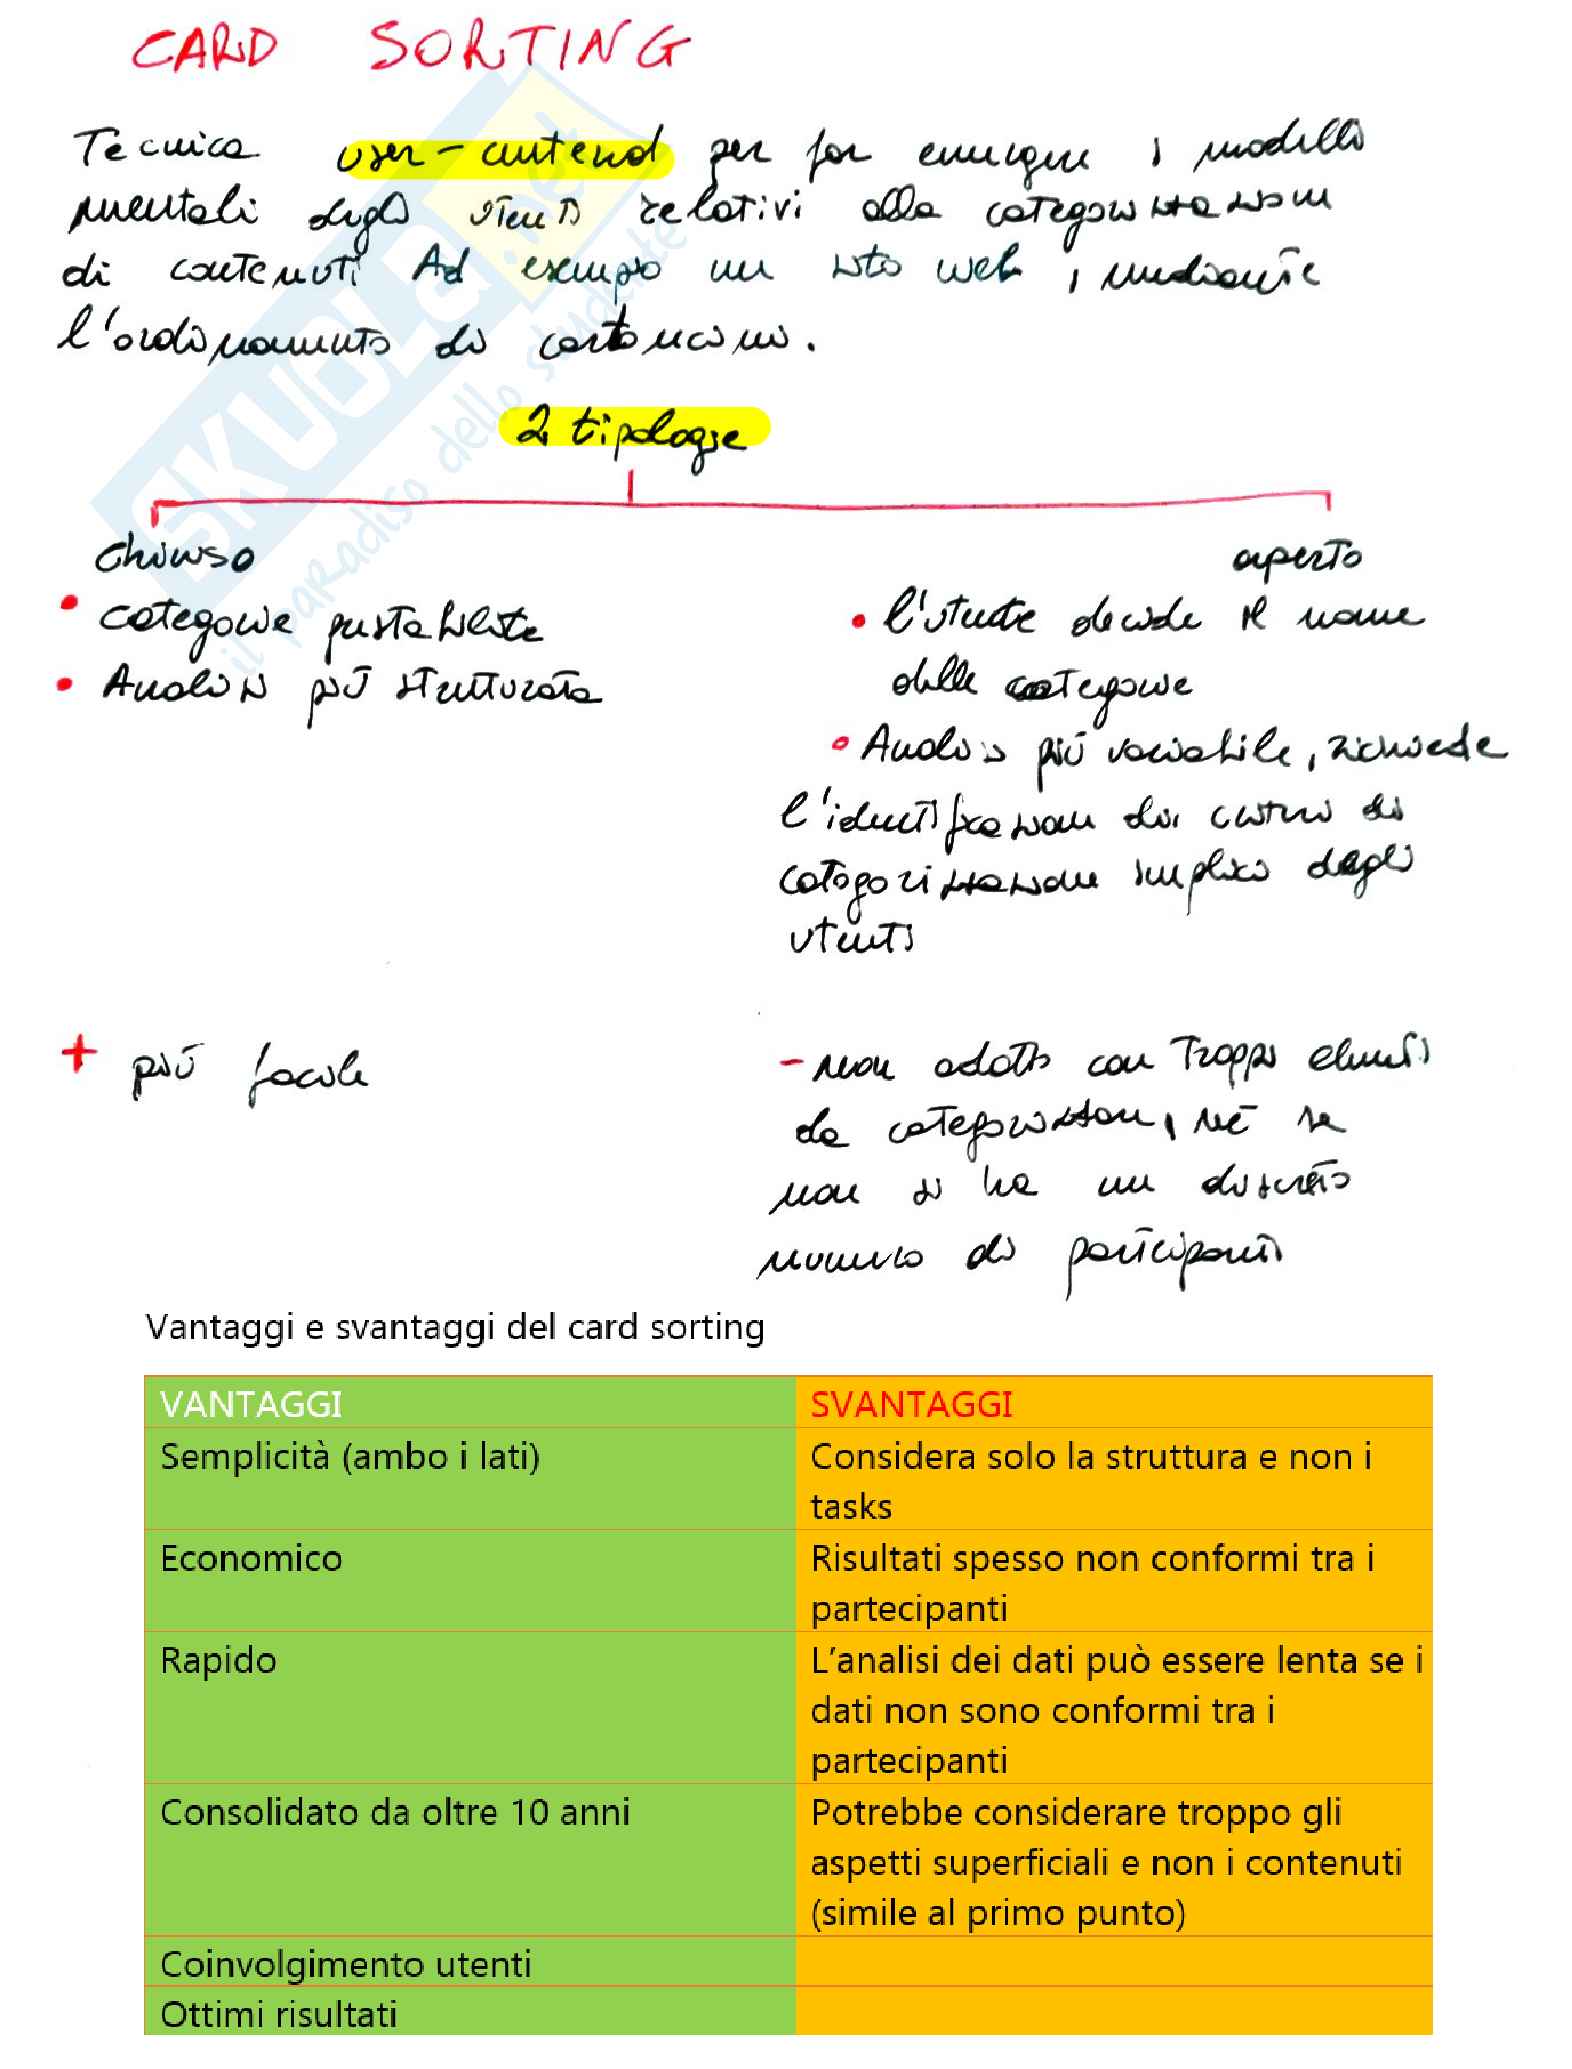 CARD SORTING
Tecnica user-centered per far emergere i modelli
mentali degli utenti relativi alla categorizzazione
di contenuti Ad esempio un sito web, mediante
l'ordinamento di cartoncini.
2 tipologie
chiuso
aperto
• categorie prestabilite
• Analisi più strutturata
• l'utente decide il nome
delle categorie
• Analisi più variabile, richiede
l'identificazione dei criteri di
categorizzazione impliciti degli
utenti
+ più facile
- non adatto con Troppi elementi
da categorizzare, né se
non si ha un discreto
numero di partecipanti
Vantaggi e svantaggi del card sorting
VANTAGGI SVANTAGGI
Semplicità (ambo i lati) Considera solo la struttura e non i
tasks
Economico Risultati spesso non conformi tra i
partecipanti
Rapido L'analisi dei dati può essere lenta se i
dati non sono conformi tra i
partecipanti
Consolidato da oltre 10 anni Potrebbe considerare troppo gli
aspetti superficiali e non i contenuti
(simile al primo punto)
Coinvolgimento utenti
Ottimi risultati
SKUOLA.net
il paradiso dello studente